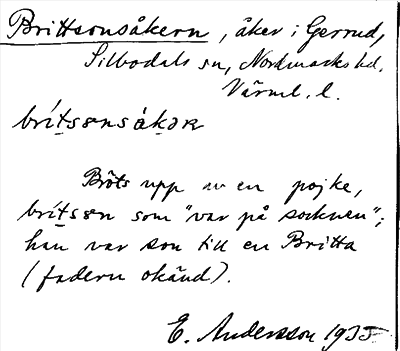 Brittsonsåkern, åker i Gerrud,
Silbodals sn, Nordmarks hd.
Värml. l.
brítsɵnsåkɔʀ
Bröts upp av en pojke,
brítsɵn som "var på socknen";
han var son till en Britta
(fadern okänd).
E. Andersson 1935